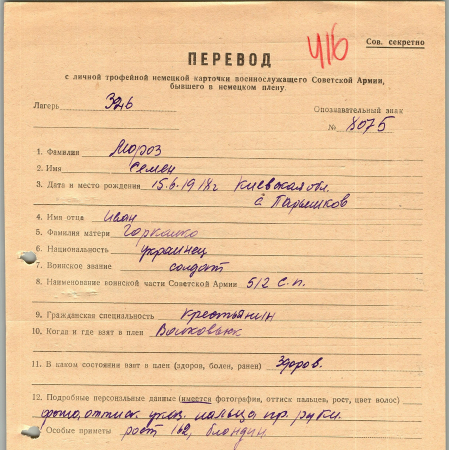 416
Сов. секретно
ПЕРЕВОД
с личной трофейной немецкой карточки военнослужащего Советской Армии,
бывшего в немецком плену
Лагерь 326 Опознавательный знак
№ 8075
1. Фамилия Мороз
2. Имя Семен
3. Дата и место рождения 15.6.1918г Киевская обл.
с.
4. Имя отца Иван
5. Фамилия матери
6. Национальность украинец
7. Воинское звание солдат
8. Наименование воинской части Советской Армии 512 с.п.
9. Гражданская специальность крестьянин
10. Когда и где взят в плен Волковыск
11. В каком состоянии взят в плен (здоров, болен, ранен) здоров.
12. Подробные персональные данные (имеется фотография, оттиск пальцев, рост, цвет волос)
фото, оттиск указ. пальца пр. руки.
Особые приметы рост 162, блондин